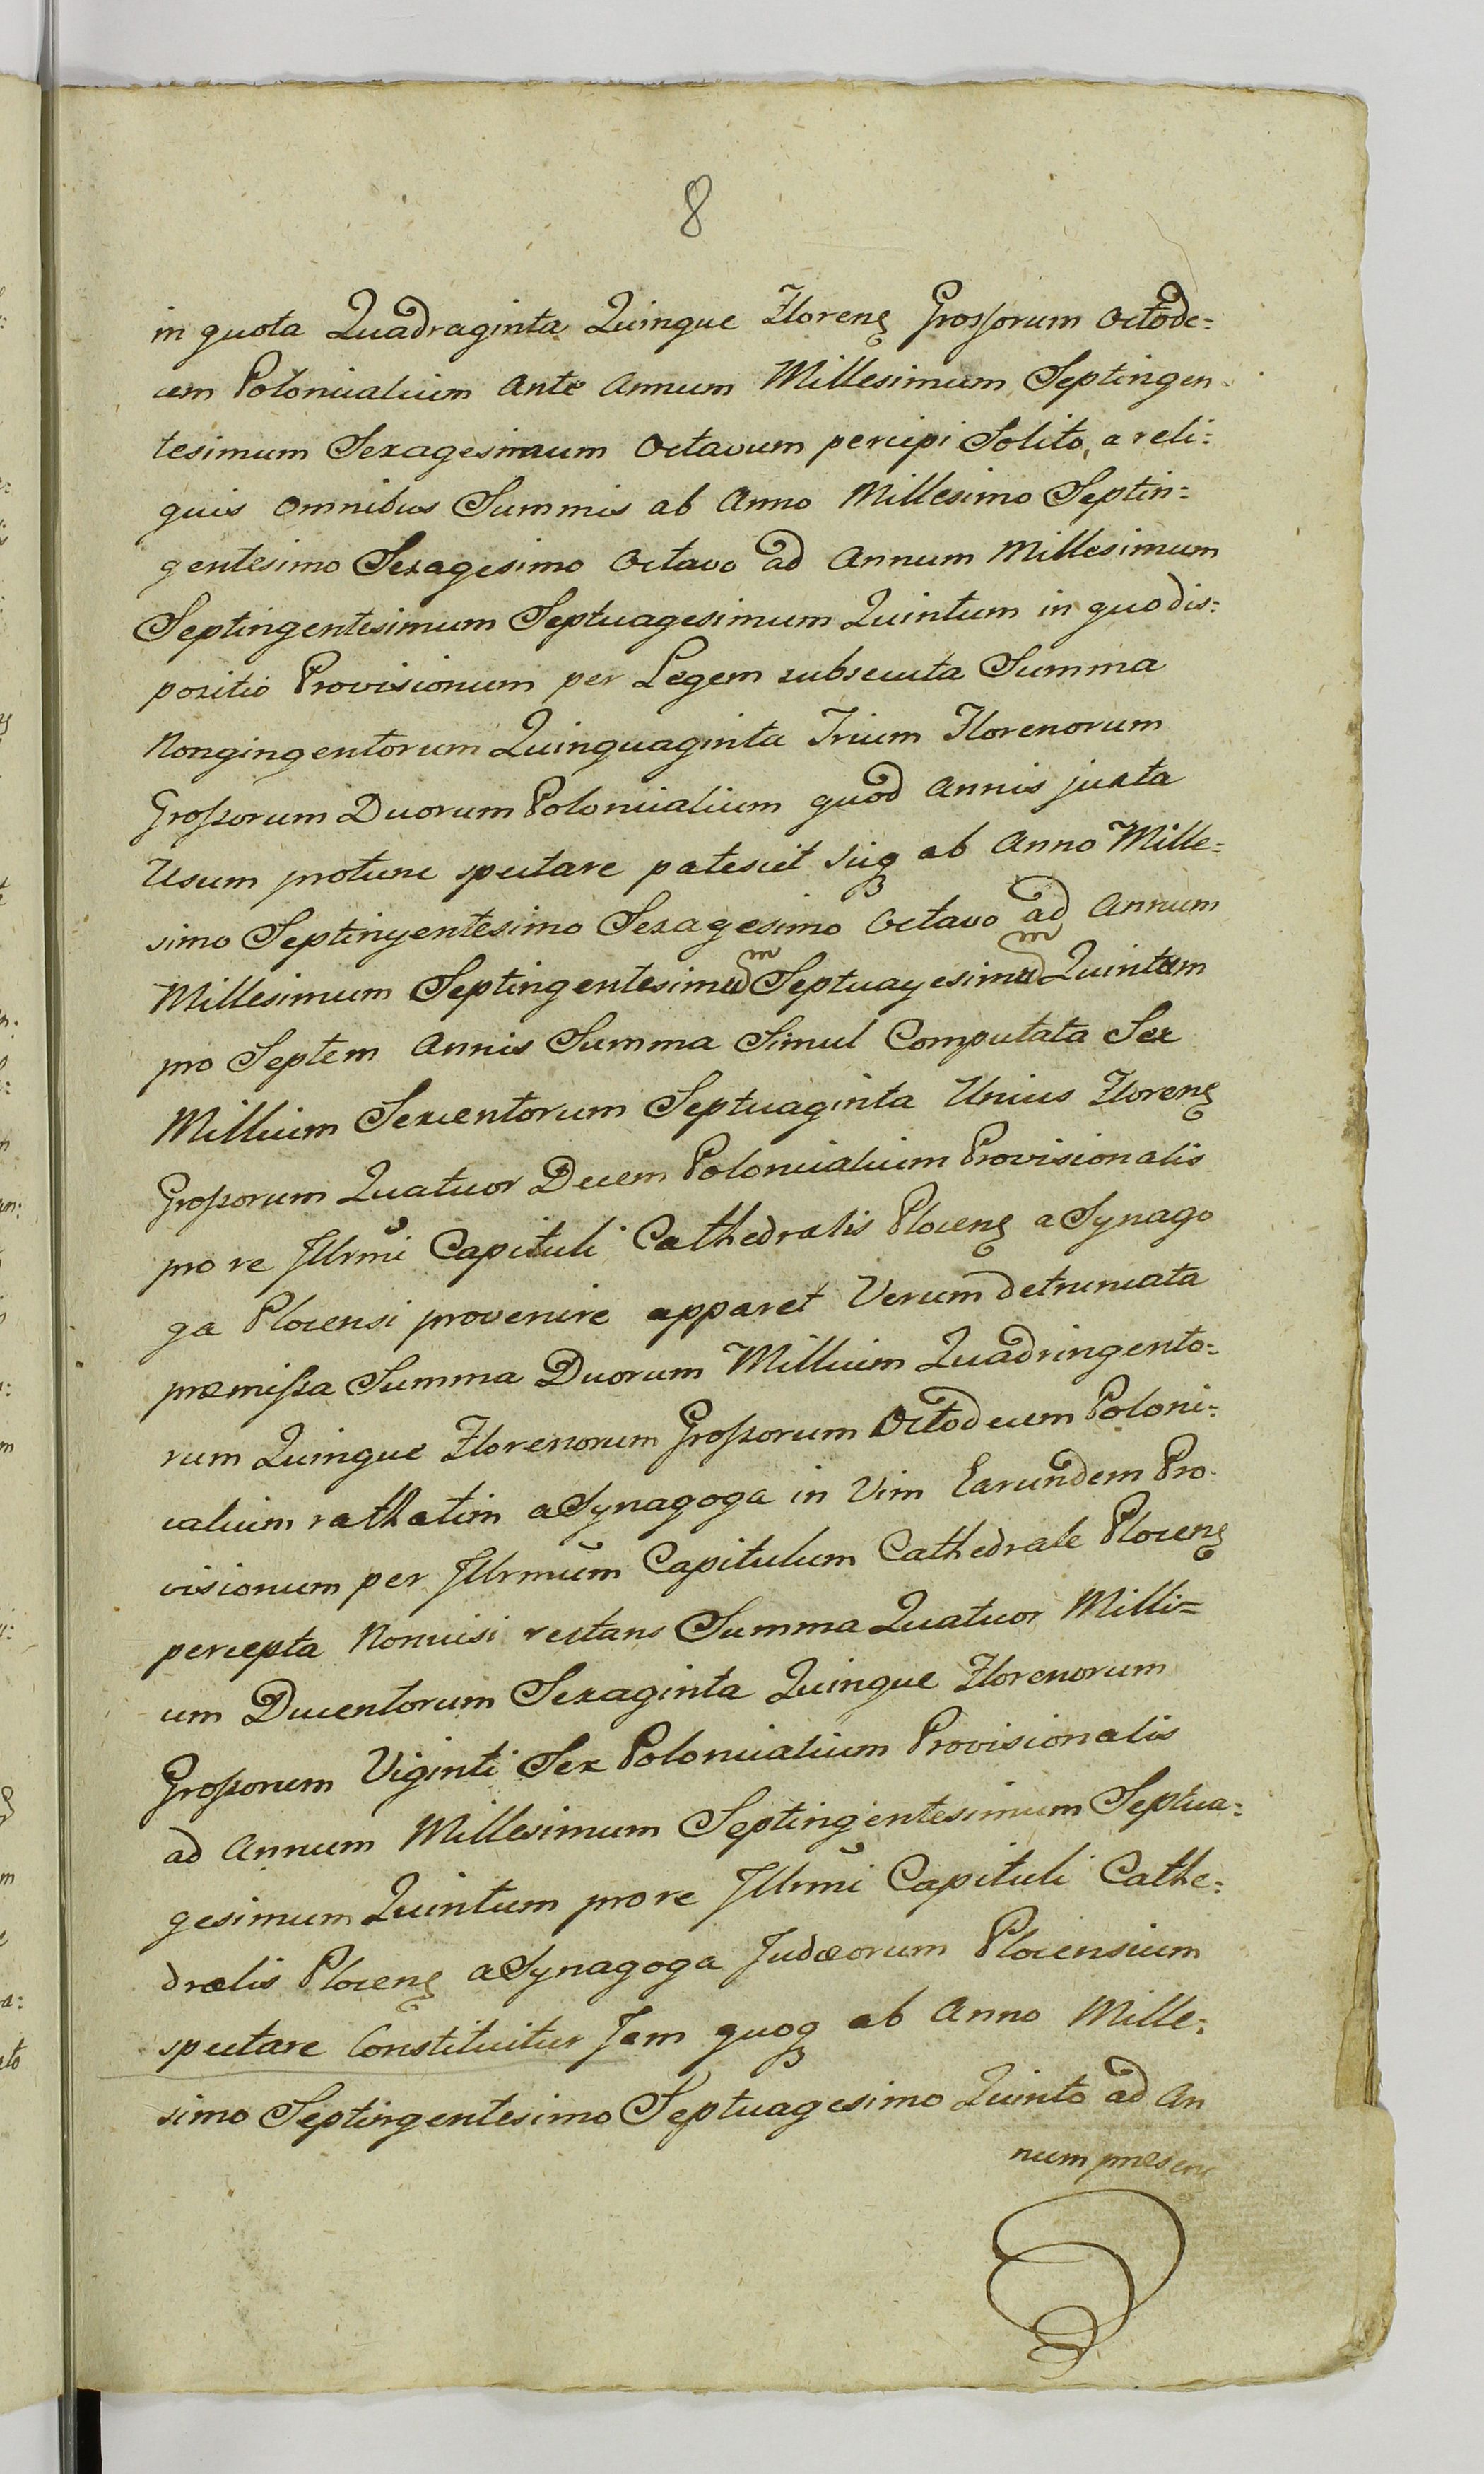 8
in quota Quadraginta Quinque Floren̄ Grossorum Octode=
cem Polonicalium Ante Annum Millesimum Septingen
tesimum Sexagesimum Octavum percipi Solito, a reli=
quis Omnibus Summis ab Anno Millesimo Septin=
gentesimo Sexagesimo Octavo ad Annum Millesimum
Septingentesimum Septuagesimum Quintum in quo dis=
positio Provisionum per Legem subsecuta Summa
Nongingentorum Quinquaginta Trium Florenorum
Grossorum Duorum Polonicalium quod Annis juxta
Usum protunc spectare patescit Sicq ab Anno Mille=
simo Septingentesimo Sexagesimo Octavo ad Annum
Millesimum Septingentesimum Septuagesimum Quintum
pro Septem Annis Summa Simul Computata Sex
Millium Sexcentorum Septuaginta Unius Floren̄
Grossorum Quatuor Decem Polonicalium Provisionalis
pro re Jllrmi Capituli Cathedralis Plocen̄ a Synago
ga Plocensi provenire apparet Verum detruncata
præmissa Summa Duorum Millium Quadringento=
rum Quinque Florenorum Grossorum Octodecem Poloni=
calium rathatim a Synagoga in Vim Earundem Pro
visionum per Jllrmum Capitulum Cathedrale Plocen̄
percepta Nonnisi restans Summa Quatuor Milli=
um Ducentorum Sexaginta Quinque Florenorum
Grossorum Viginti Sex Polonicalium Provisionalis
ad Annum Millesimum Septingentesimum Septua=
gesimum Quintum pro re Jllrmi Capituli Cathe=
dralis Plocen̄ a Synagoga Judæorum Plocensium
spectare Constituitur Jam quoq ab Anno Mille=
simo Septingentesimo Septuagesimo Quinto ad An
num præsen